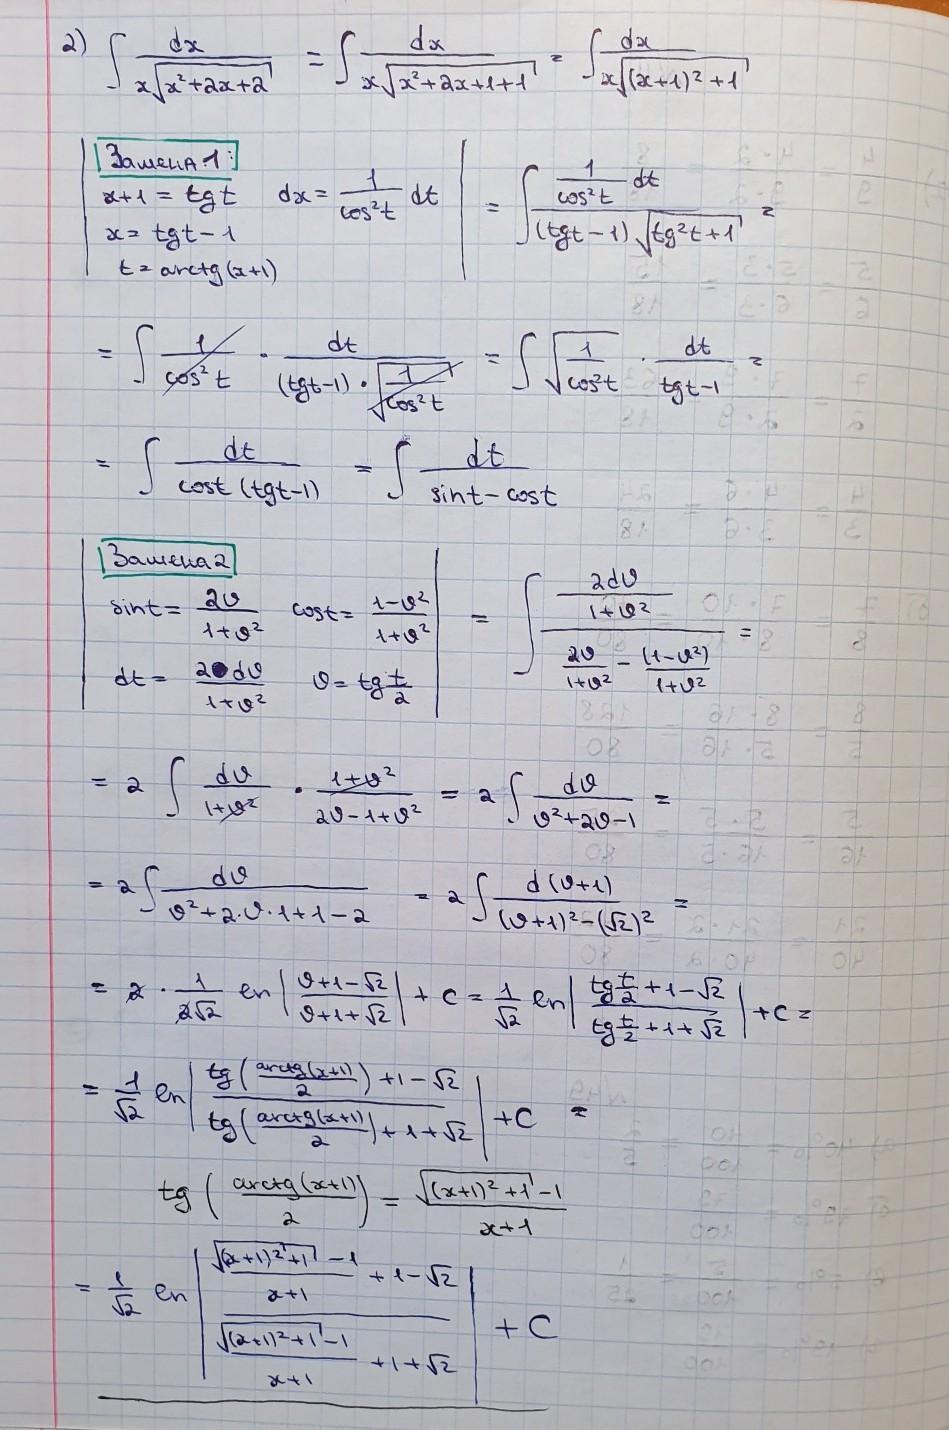 2) ∫ dx / (x√(x²+2x+2)) = ∫ dx / (x√(x²+2x+1+1)) = ∫ dx / (x√((x+1)²+1))
Замена 1:
x+1 = tgt   dx = 1/cos²t dt
x = tgt − 1
t = arctg(x+1)
= ∫ (1/cos²t dt) / ((tgt−1)√(tg²t+1)) =
= ∫ 1/cos²t · dt / ((tgt−1)·√(1/cos²t)) = ∫ √(1/cos²t) · dt/(tgt−1) =
= ∫ dt / (cost (tgt−1)) = ∫ dt / (sint − cost)
Замена 2
sint = 2υ/(1+υ²)   cost = (1−υ²)/(1+υ²)
dt = 2dυ/(1+υ²)   υ = tg t/2
= ∫ (2dυ/(1+υ²)) / (2υ/(1+υ²) − (1−υ²)/(1+υ²)) =
= 2 ∫ dυ/(1+υ²) · (1+υ²)/(2υ−1+υ²) = 2 ∫ dυ/(υ²+2υ−1) =
= 2∫ dυ/(υ²+2·υ·1+1−2) = 2∫ d(υ+1)/((υ+1)²−(√2)²) =
= 2 · 1/(2√2) ln|(υ+1−√2)/(υ+1+√2)| + C = 1/√2 ln|(tg t/2 +1−√2)/(tg t/2 +1+√2)| + C =
= 1/√2 ln|(tg(arctg(x+1)/2) +1−√2)/(tg(arctg(x+1)/2) +1+√2)| + C =
tg(arctg(x+1)/2) = (√((x+1)²+1) −1)/(x+1)
= 1/√2 ln|((√((x+1)²+1) −1)/(x+1) +1−√2)/((√((x+1)²+1) −1)/(x+1) +1+√2)| + C